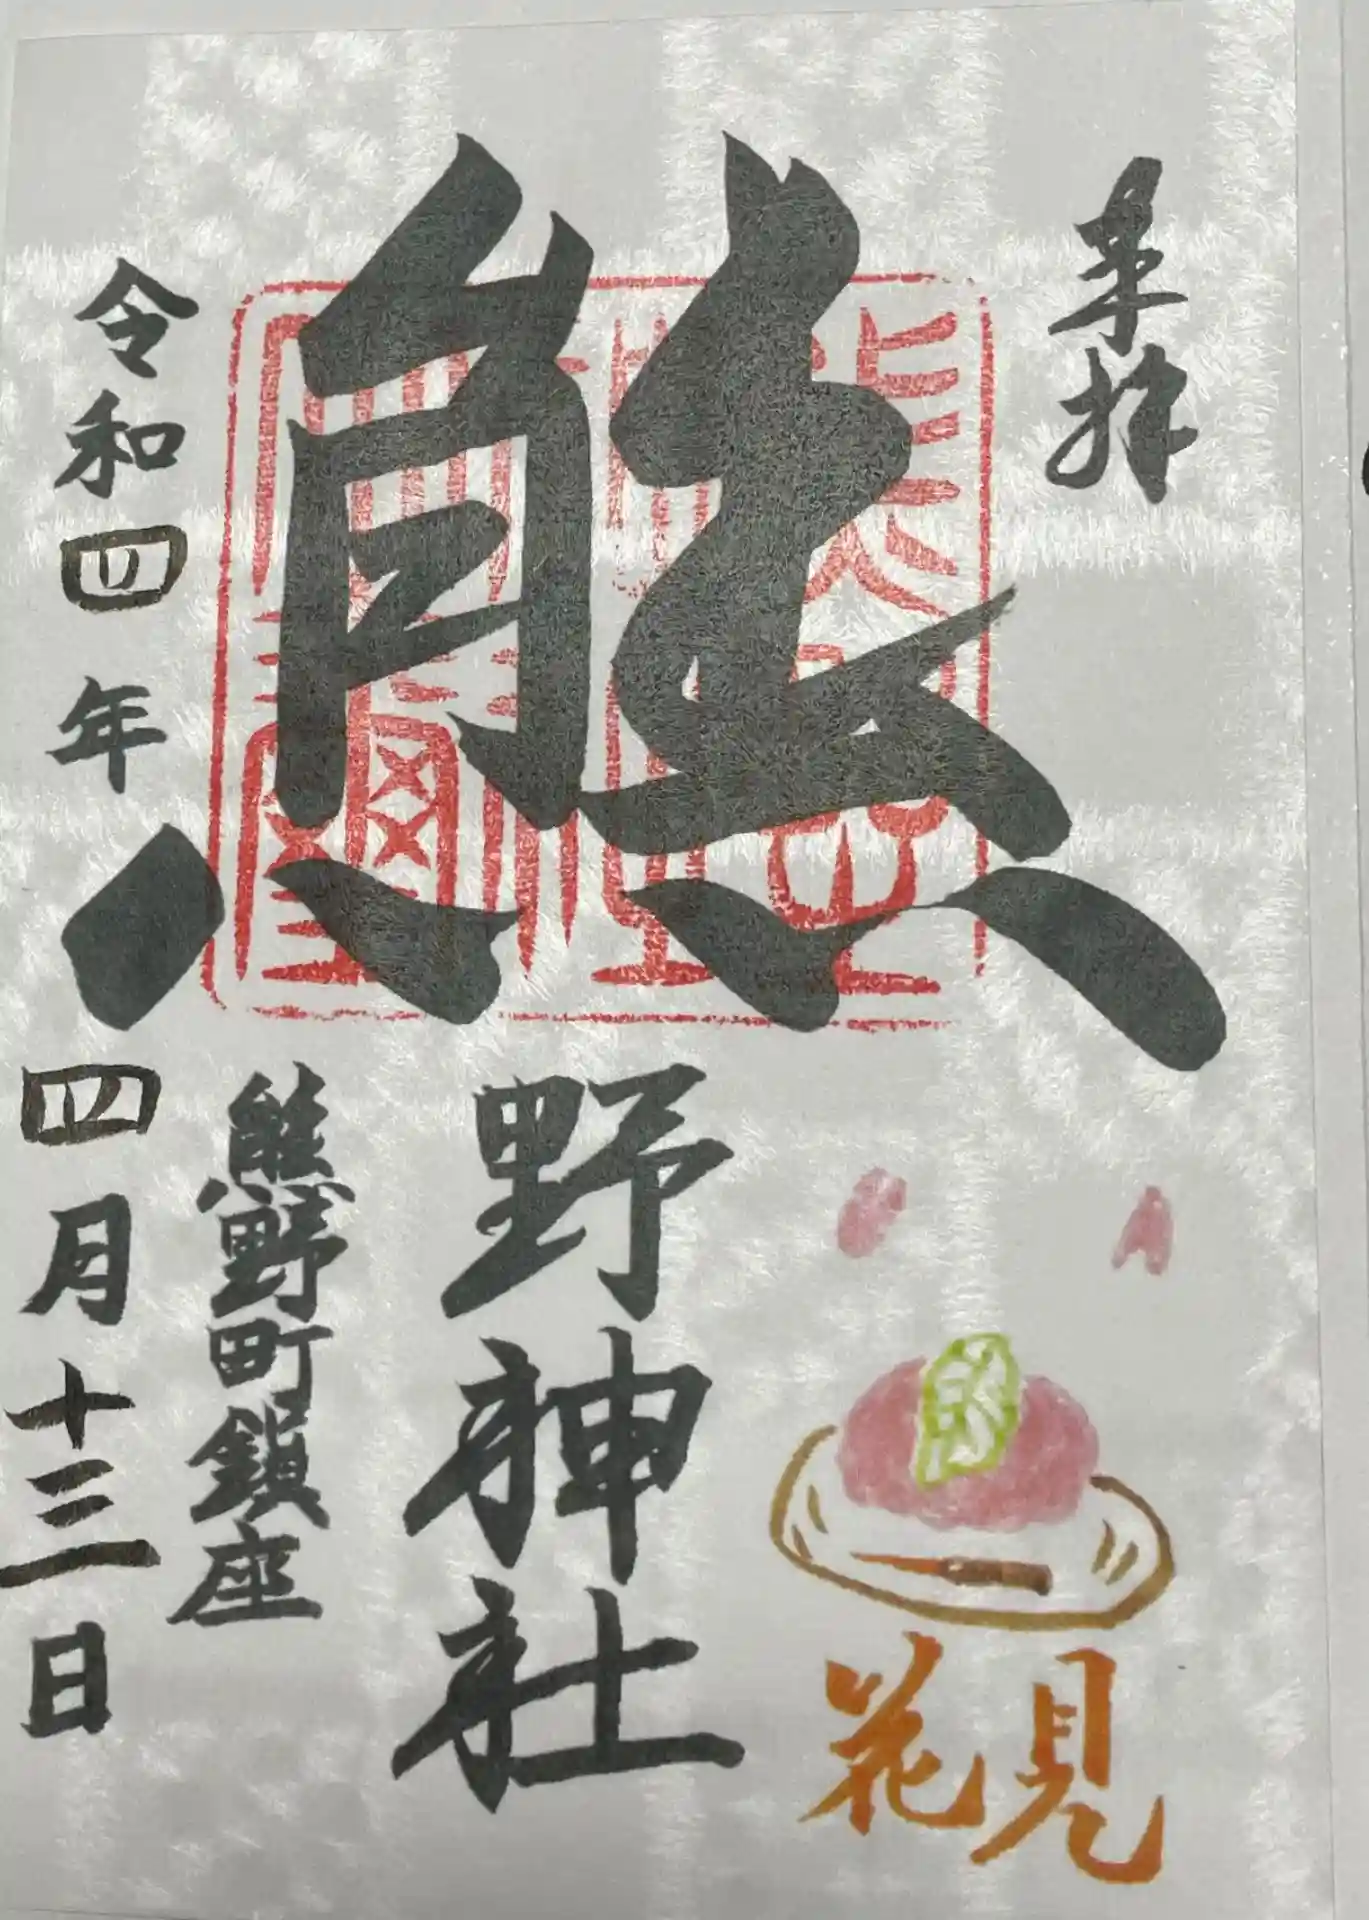 奉拝
熊野神社
花見
熊野町鎮座
令和四年四月十三日